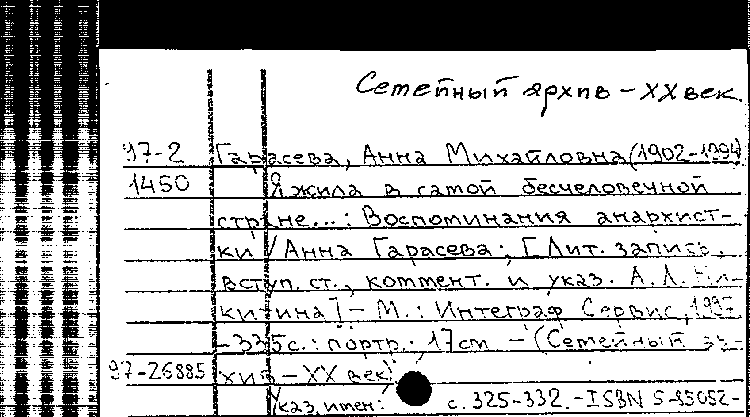 Семейный архив – XX век.
97-2 Гарасева, Анна Михайловна (1902-1994)
1450 Я жила в самой бесчеловечной
стране...: Воспоминания анархист-
ки / Анна Гарасева; [Лит. запись,
вступ. ст., коммент. и указ. А. Л. Ни-
китина] – М.: Интеграф Сервис,
– 335 с.: портр.; 17 см – (Семейный ар-
97-26885 хив – XX век)
Указ. имен: с. 325-332. – ISBN 5-85052-